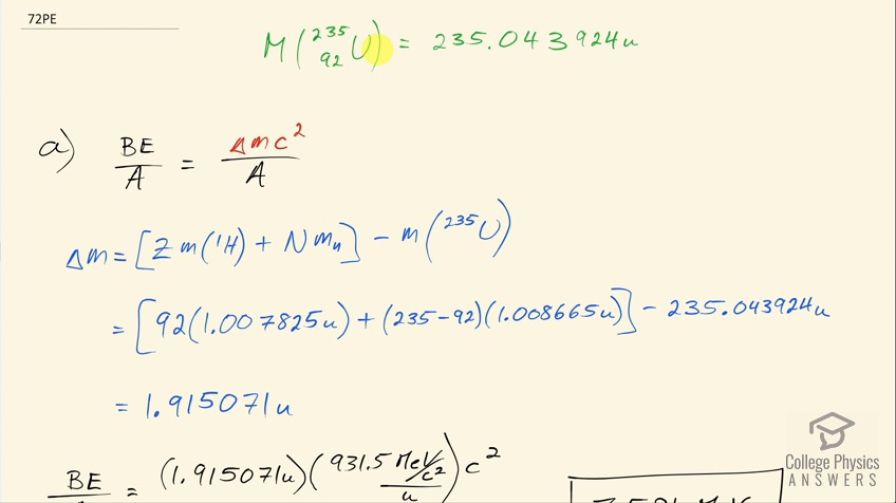 72PE
M(²³⁵₉₂U) = 235.043924u
a) BE/A = Δmc²/A
Δm = [Z m(¹H) + N mₙ] - m(²³⁵U)
= [92(1.007825u) + (235-92)(1.008665u)] - 235.043924u
= 1.915071u
BE = (1.915071u)(931.5 MeV/c²/u)c²
College Physics
ANSWERS